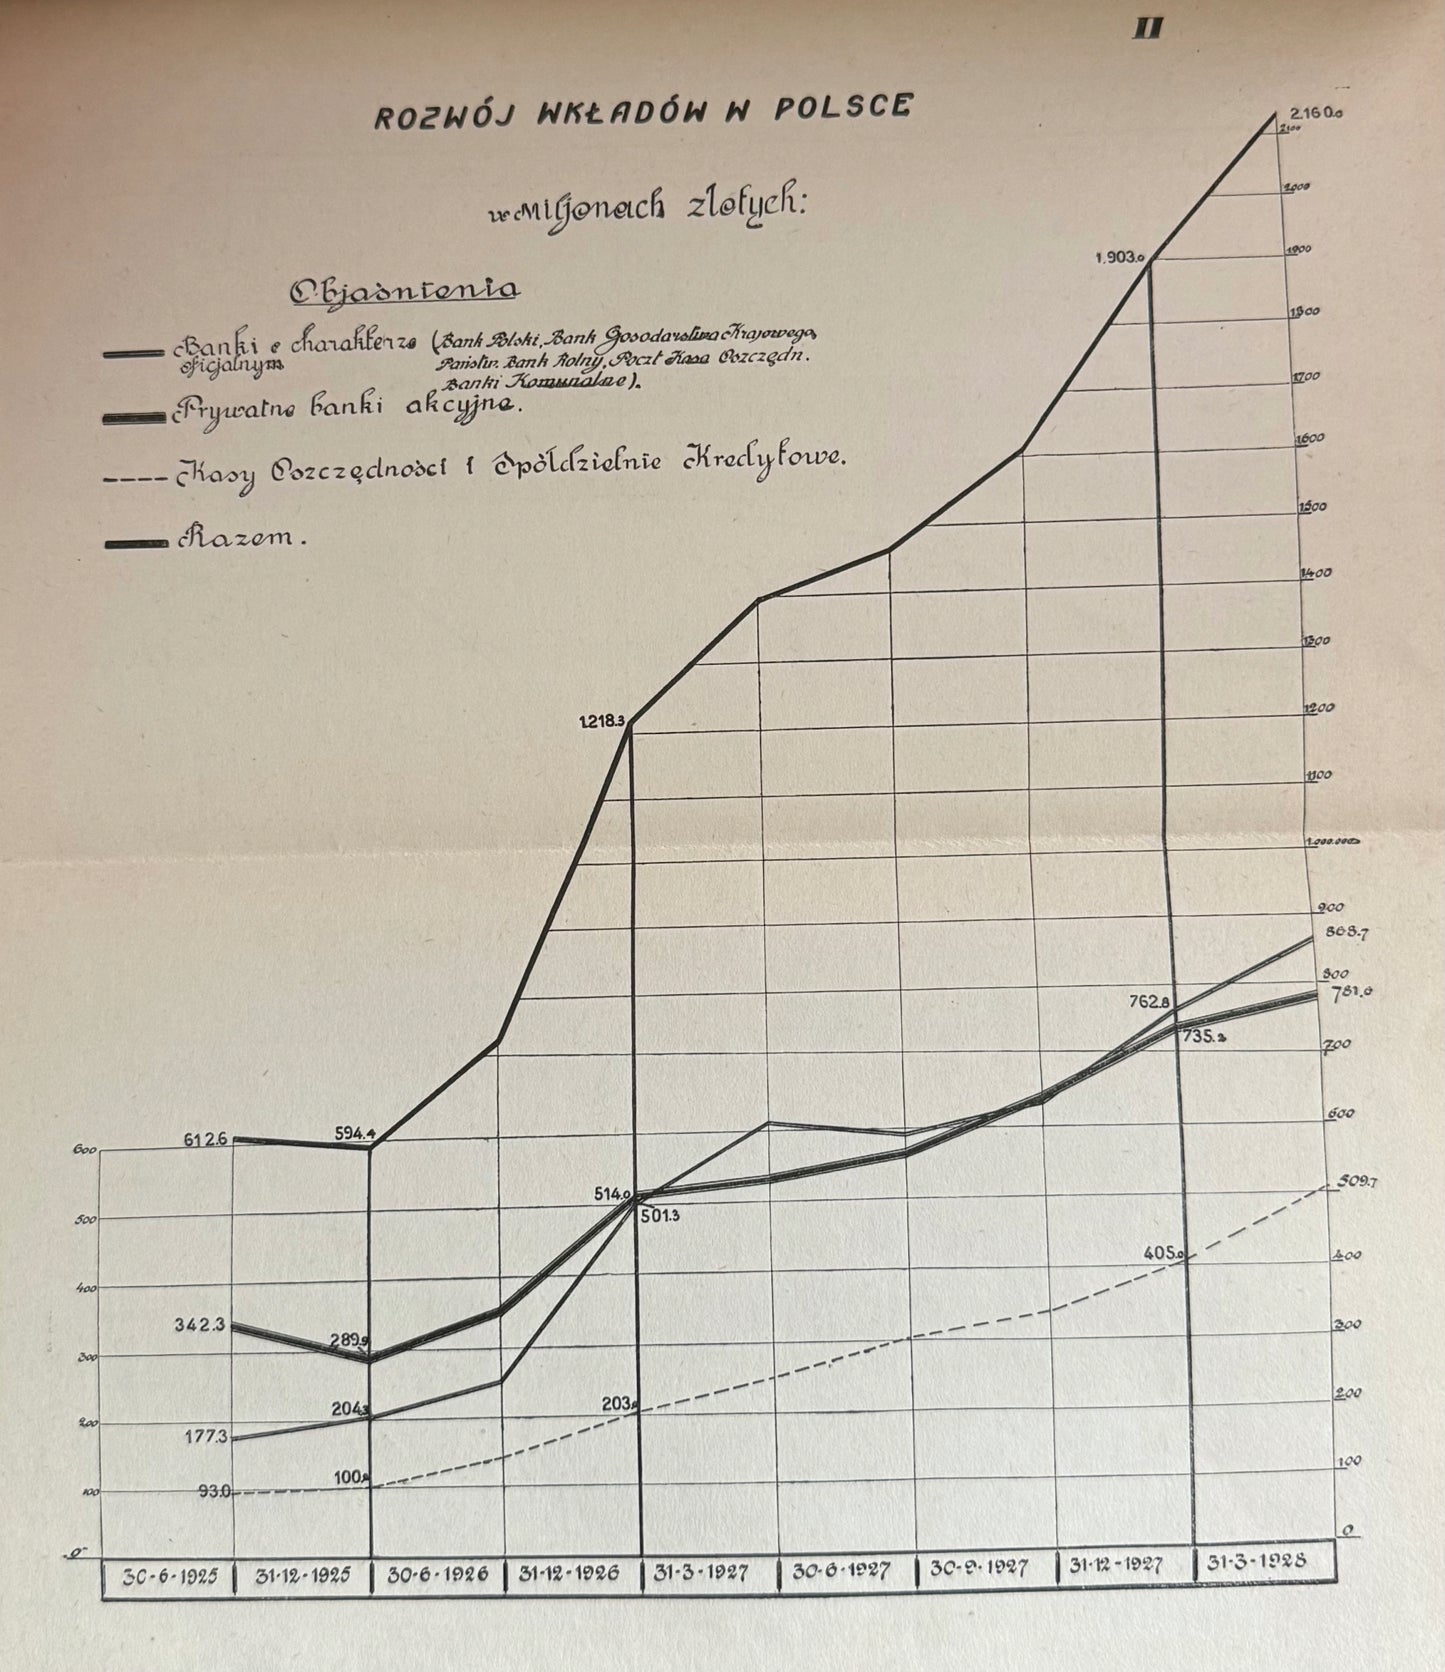 II
ROZWÓJ WKŁADÓW W POLSCE
w Miljonach złotych:
Objaśnienia
Banki o charakterze (Bank Polski, Bank Gosodarstwa Krajowego,
oficjalnym Państw. Bank Rolny, Poczt Kasa Oszczędn.
Banki Komunalne).
Prywatne banki akcyjne.
Kasy Oszczędności i Spółdzielnie Kredytowe.
Razem.
2.160.0
2100
2000
1.903.0
1900
1800
1700
1600
1500
1400
1300
1.218.3
1200
1100
1.000.000
900
868.7
800
762.8
781.0
735.3
700
612.6
594.4
600
600
514.0
501.3
500
509.7
405.0
400
400
342.3
289.9
300
300
204.3
203.
200
200
177.3
100
93.0
100
100
0
0
30-6-1925 31-12-1925 30-6-1926 31-12-1926 31-3-1927 30-6-1927 30-9-1927 31-12-1927 31-3-1928